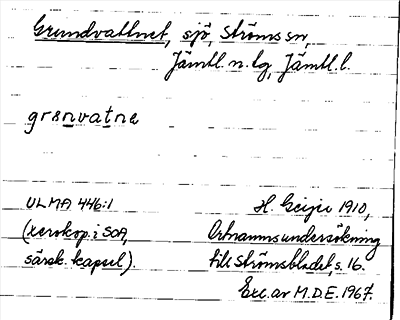 Grundvattnet, sjö, Ströms sn,
Jämtl. n. lg, Jämtl. l.
grønvatnə
ULMA 446:1 H. Geijer 1910,
(xerokop. i SOA, Ortnamnsundersökning
särsk. kapsel). till Strömsbladet, s. 16.
Exc. av M.D.E. 1967.